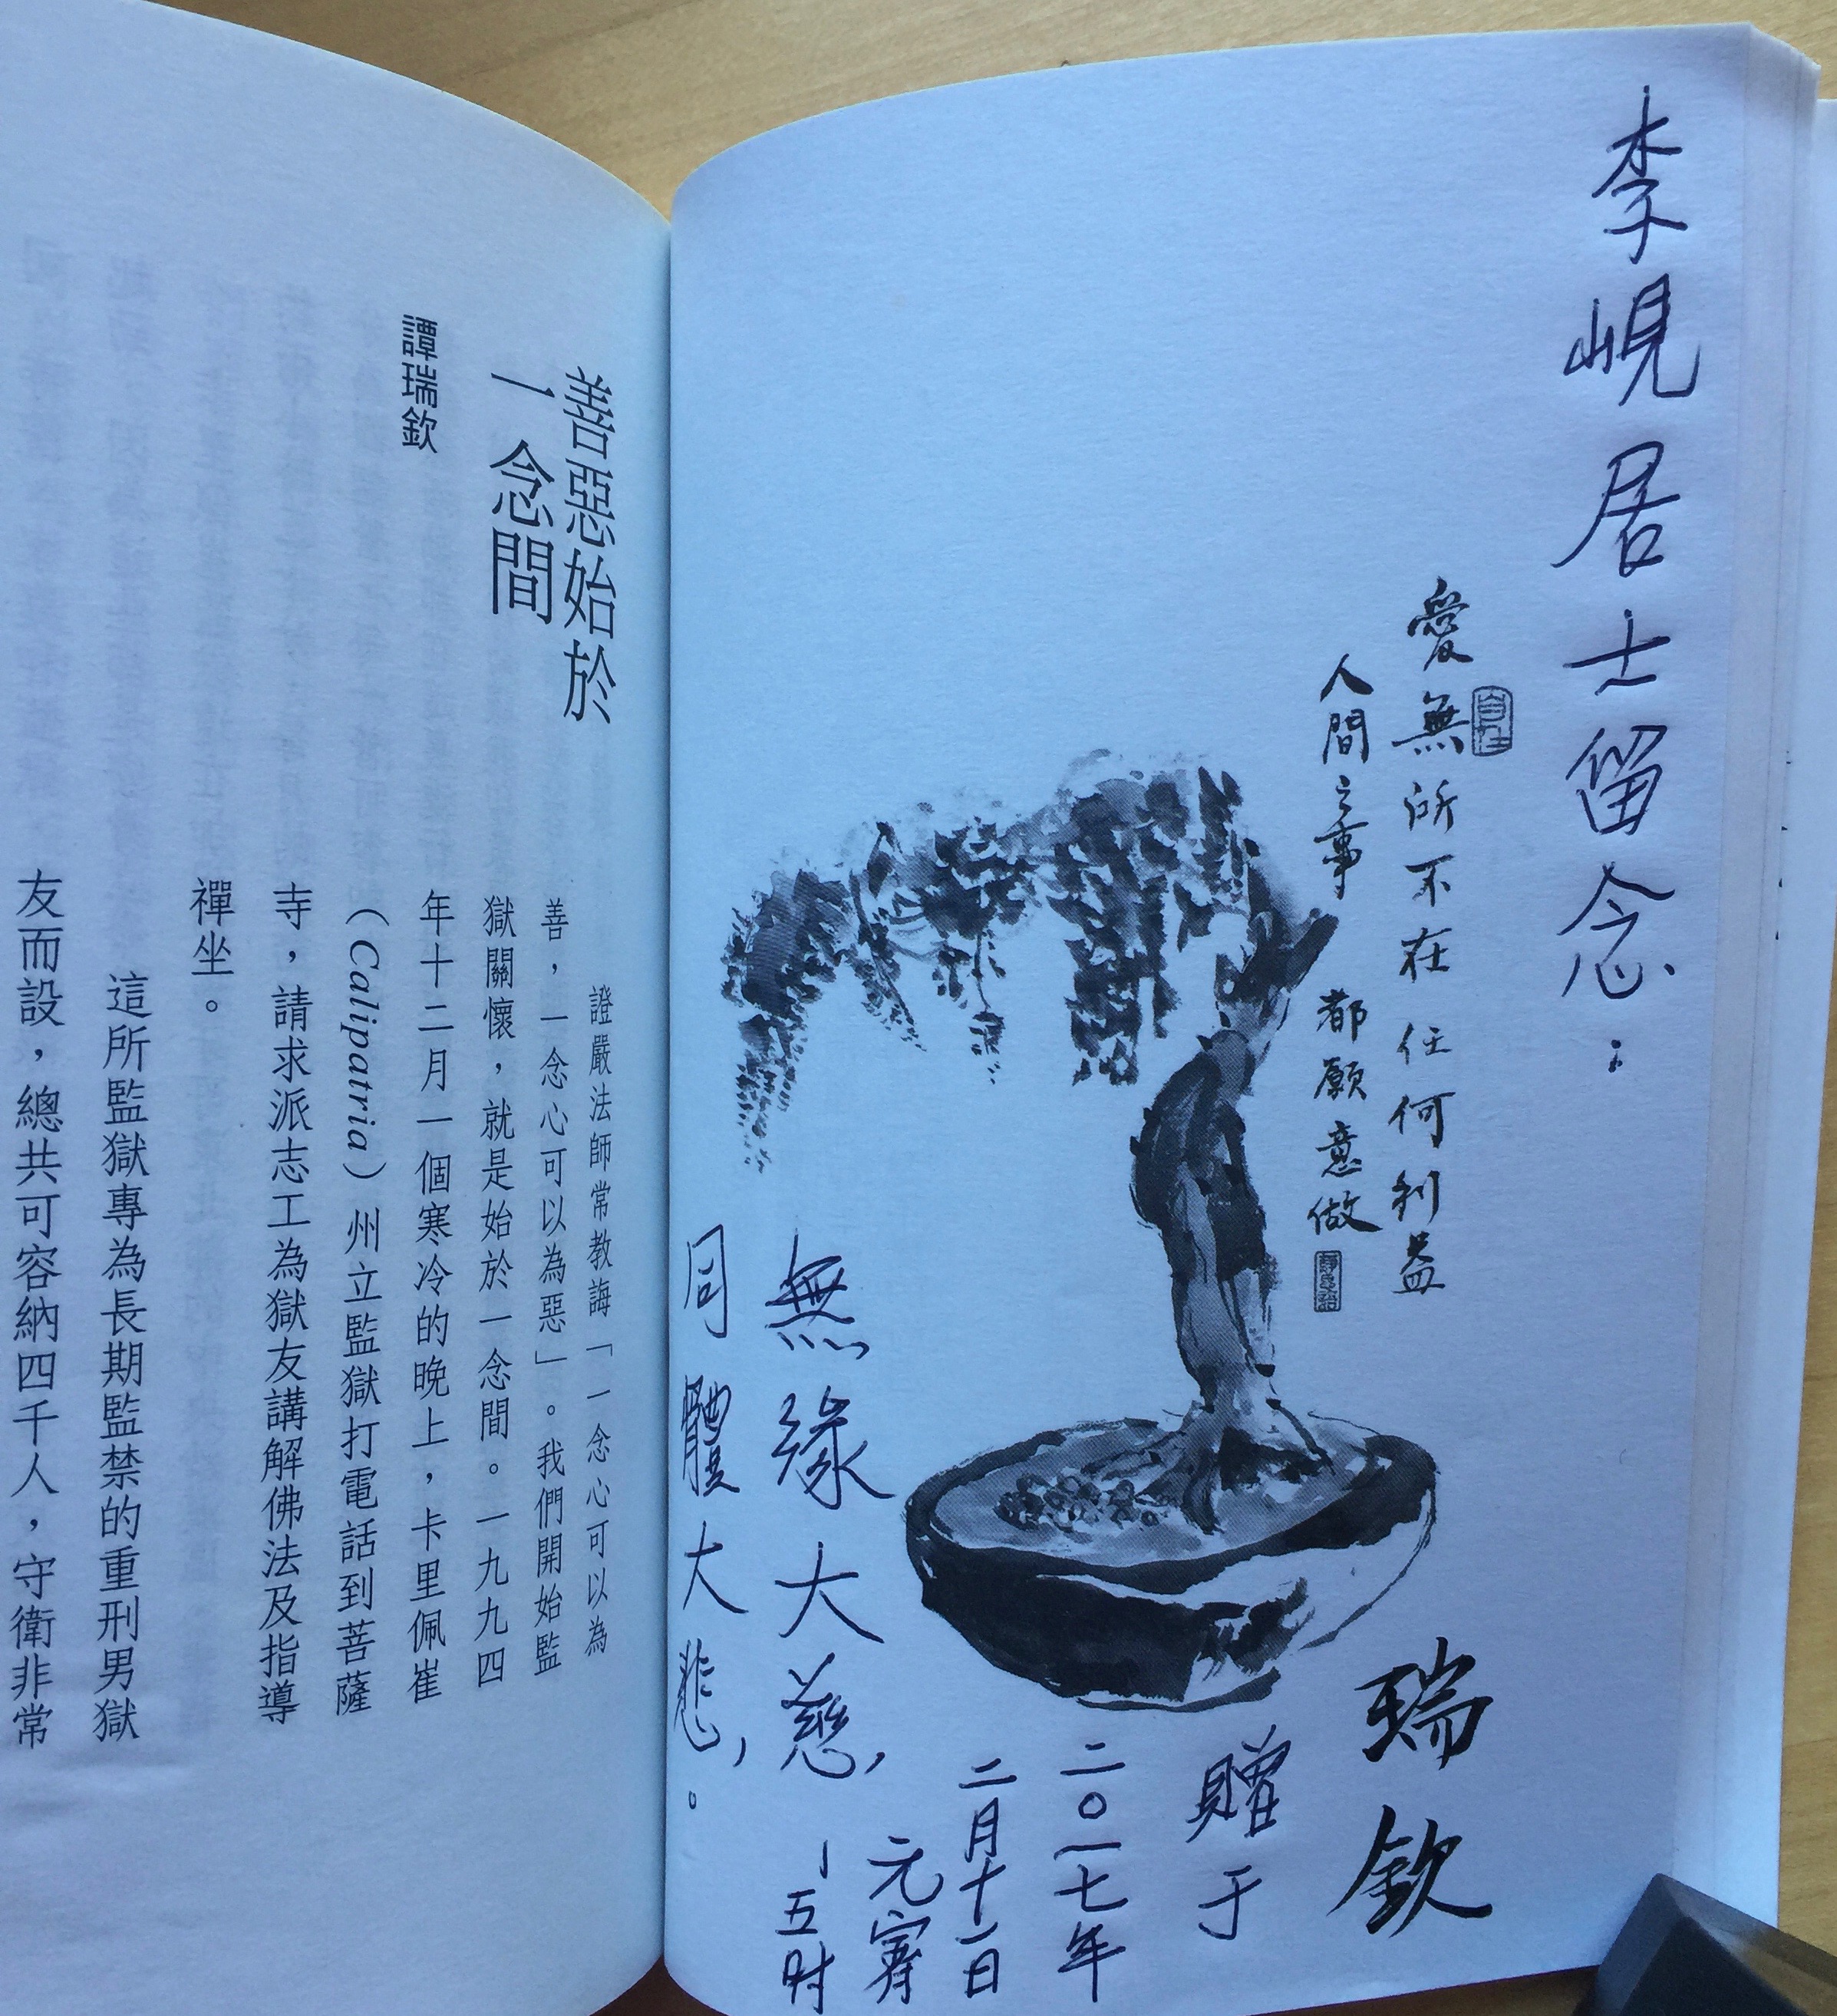 李峴居士留念：
自在
愛無所不在 任何利益
人間之事 都願意做
靜思語
瑞欽
贈于
二〇一七年
二月十一日
元宵
五时
無緣大慈，
同體大悲，。
善惡始於
一念間
譚瑞欽
證嚴法師常教誨「一念心可以為
善，一念心可以為惡」。我們開始監
獄關懷，就是始於一念間。一九九四
年十二月一個寒冷的晚上，卡里佩崔
（Calipatria）州立監獄打電話到菩薩
寺，請求派志工為獄友講解佛法及指導
禪坐。
這所監獄專為長期監禁的重刑男獄
友而設，總共可容納四千人，守衛非常